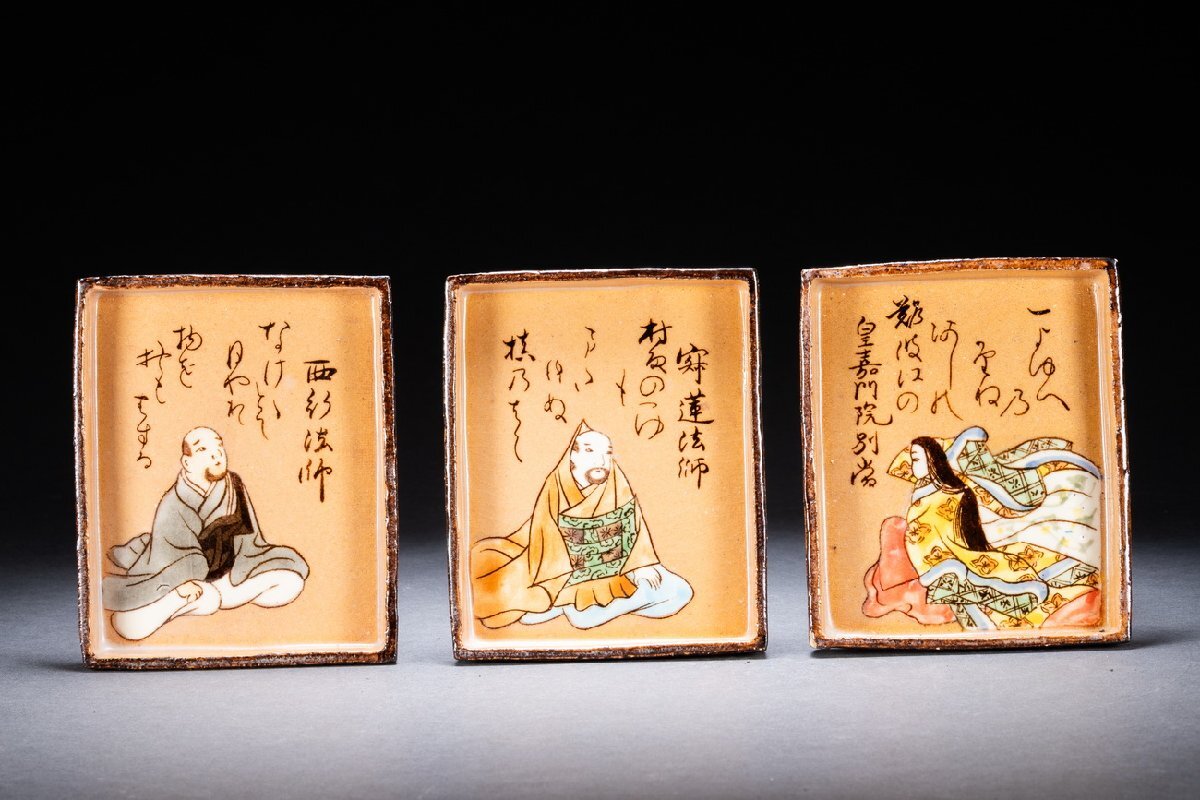 西行法師
なけゝとて
月やは
物を
おもは
する
寂蓮法師
村雨のつゆ
も
また
ひぬ
槙乃はに
皇嘉門院別當
難波江の
あしの
かりね
乃
一よゆへ